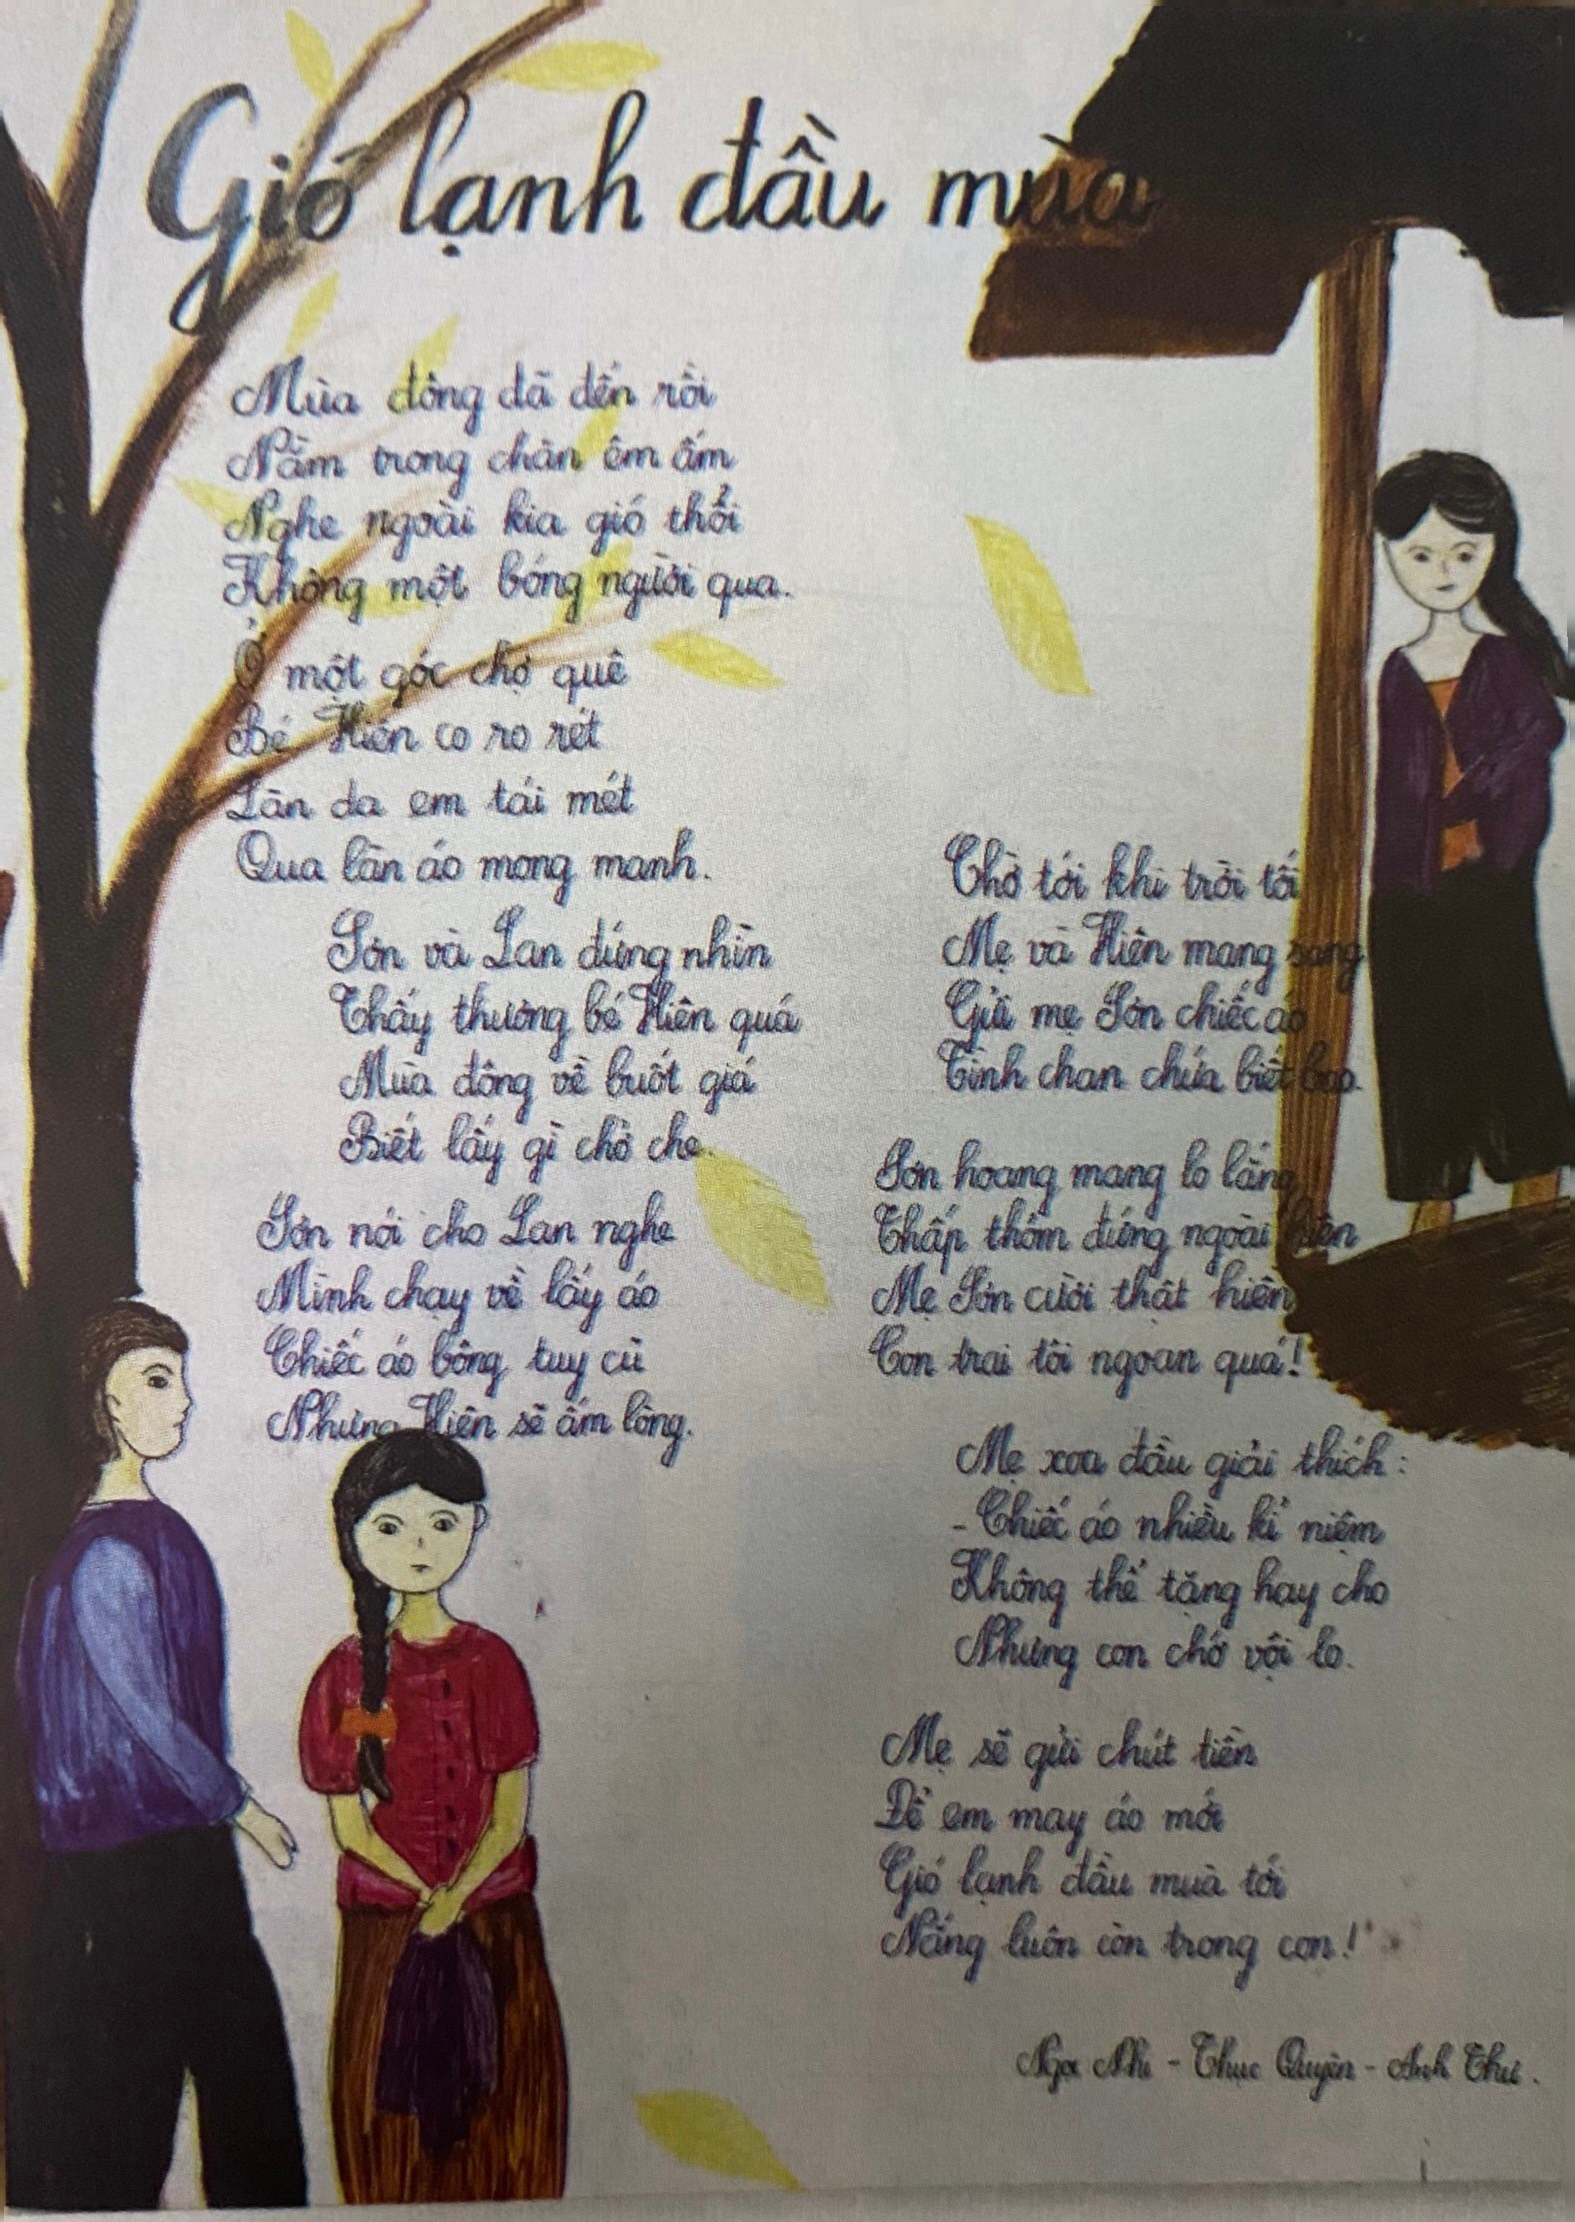 Gió lạnh đầu mùa
Mùa đông đã đến rồi
Nằm trong chăn êm ấm
Nghe ngoài kia gió thổi
Không một bóng người qua.
Ở một góc chợ quê
Bé Hiên co ro rét
Làn da em tái mét
Qua lần áo mong manh.
Sơn và Lan đứng nhìn
Thấy thương bé Hiên quá
Mùa đông về buốt giá
Biết lấy gì chở che.
Sơn nói cho Lan nghe
Mình chạy về lấy áo
Chiếc áo bông tuy cũ
Nhưng Hiên sẽ ấm lòng.
Chờ tới khi trời tối
Mẹ và Hiên mang sang
Gửi mẹ Sơn chiếc áo
Tình chan chứa biết bao.
Sơn hoang mang lo lắng
Thấp thỏm đứng ngoài hiên
Mẹ Sơn cười thật hiền
Con trai tôi ngoan quá!
Mẹ xoa đầu giải thích:
- Chiếc áo nhiều kỉ niệm
Không thể tặng hay cho
Nhưng con chớ vội lo.
Mẹ sẽ gửi chút tiền
Để em may áo mới
Gió lạnh đầu mùa tới
Nắng luôn còn trong con!
Ngọc Nhi - Thục Quyên - Anh Thư.